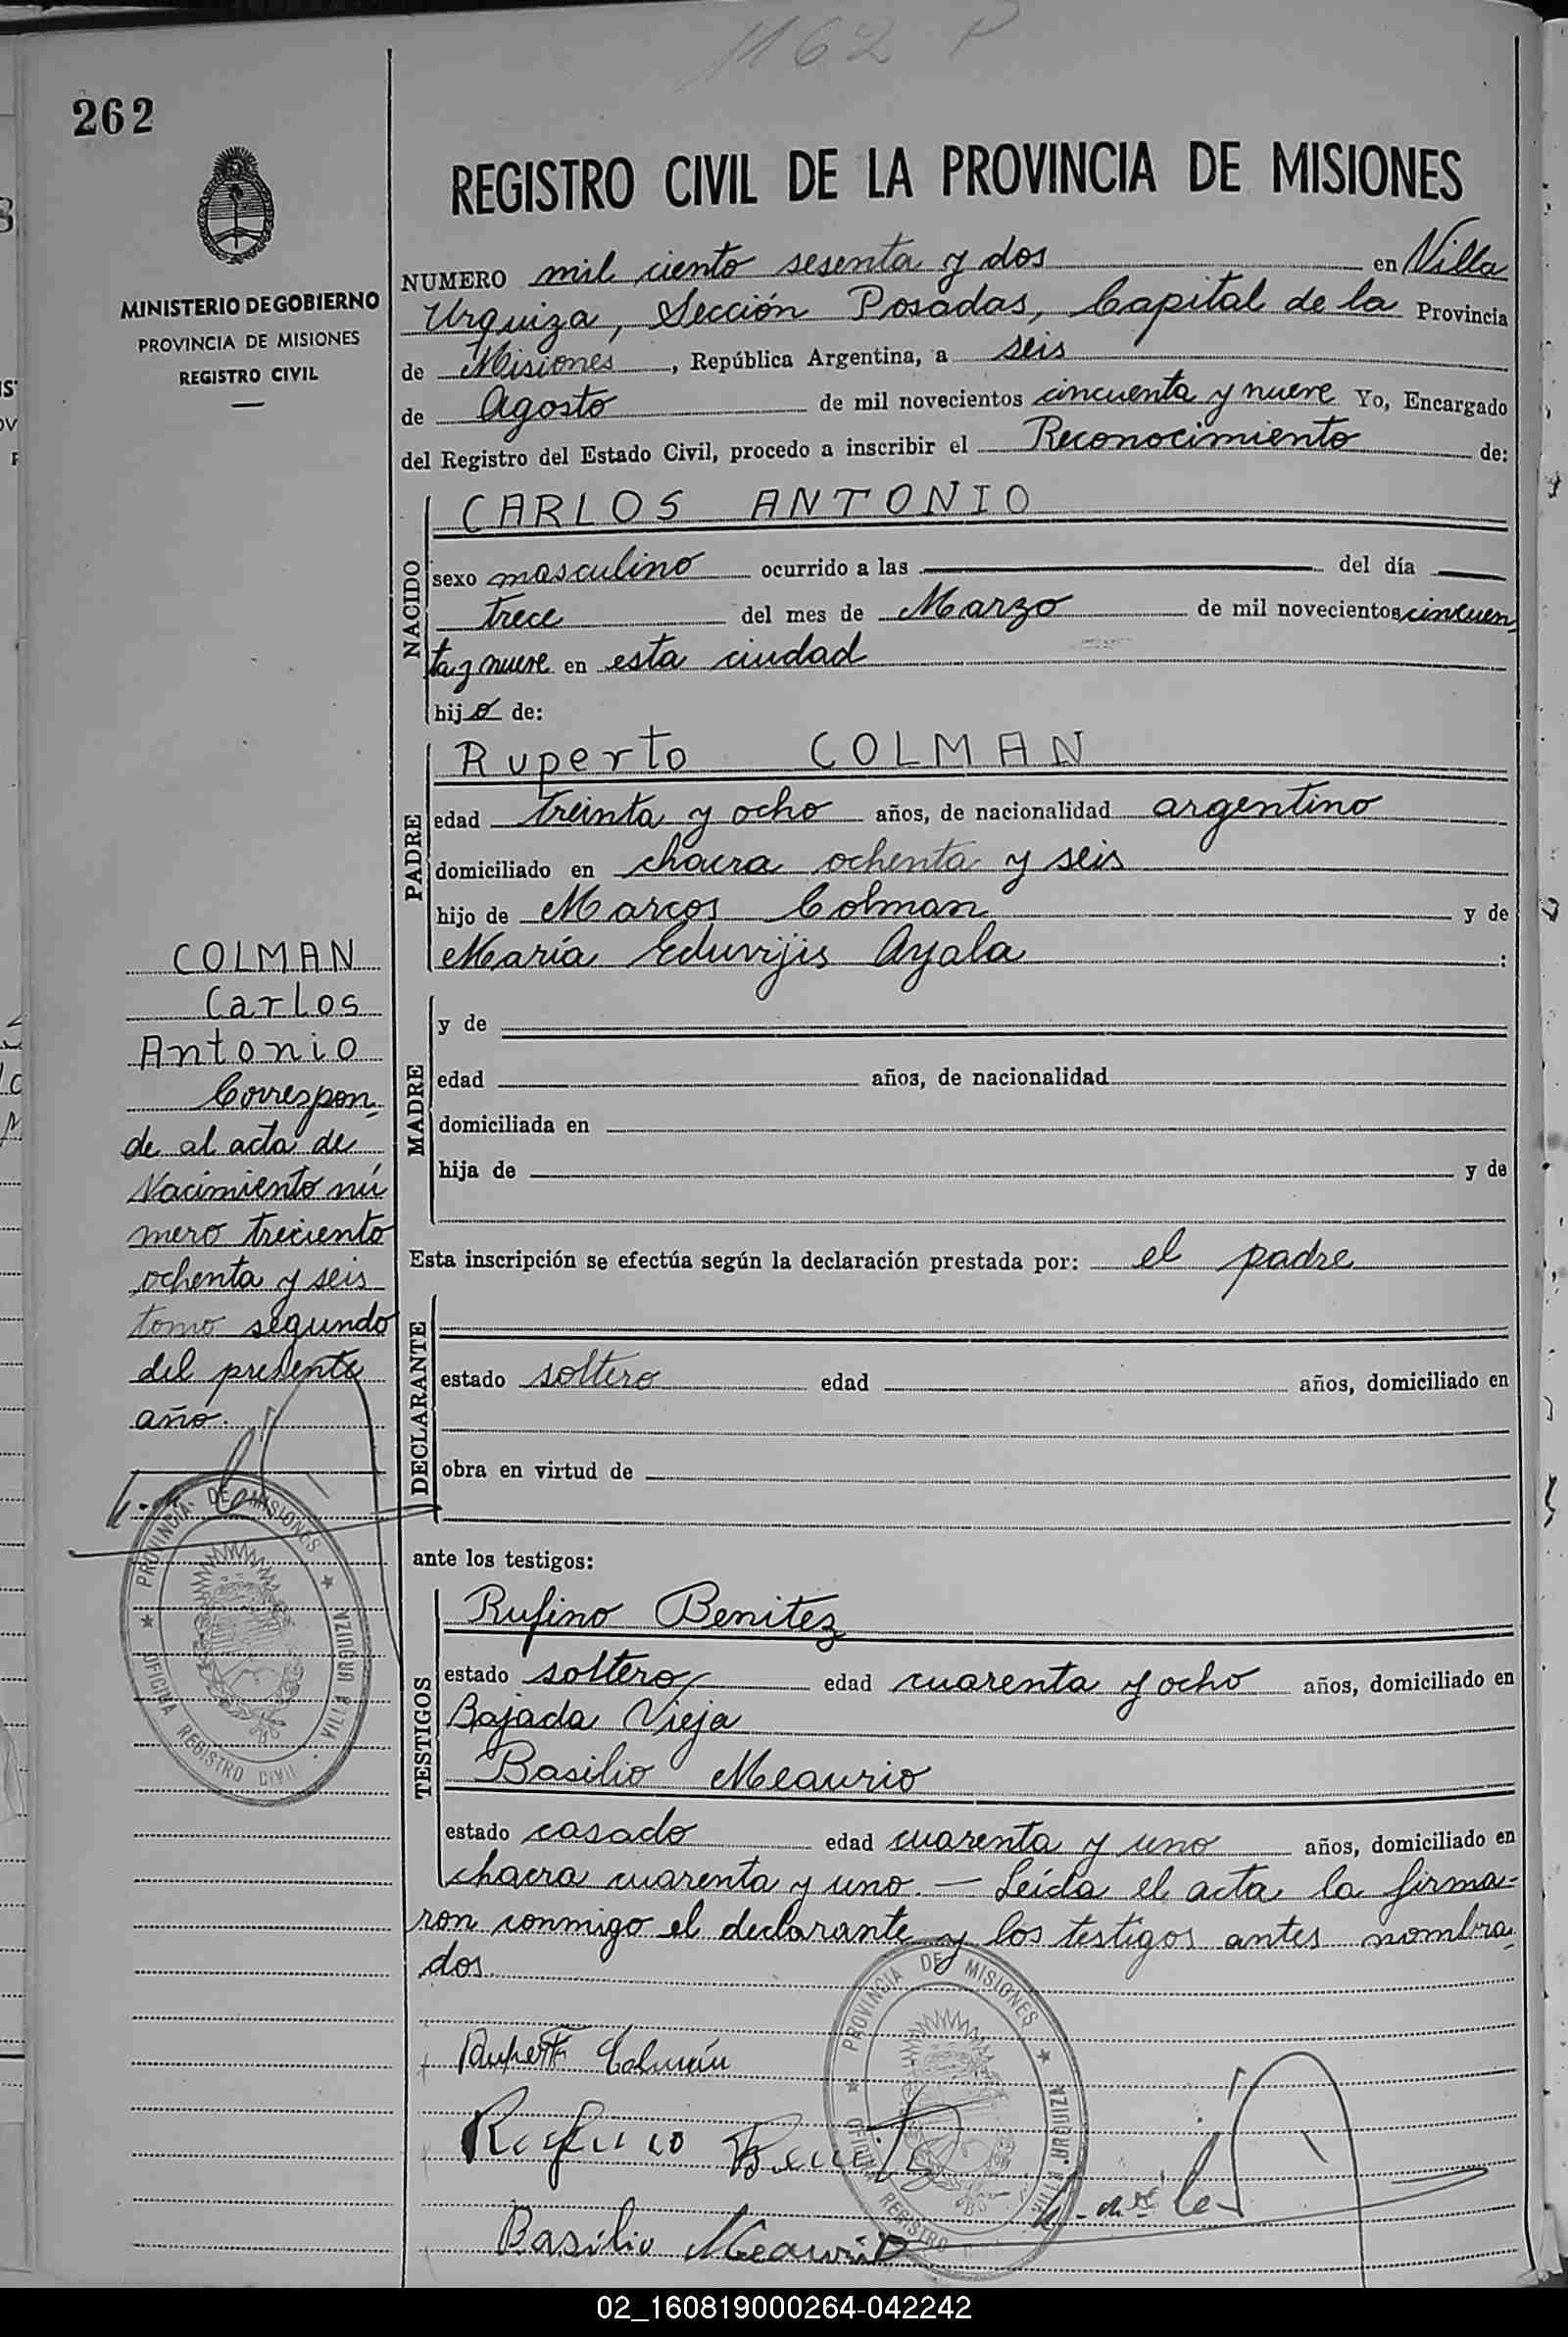 1162 P
262
MINISTERIO DE GOBIERNO
PROVINCIA DE MISIONES
REGISTRO CIVIL
REGISTRO CIVIL DE LA PROVINCIA DE MISIONES
NUMERO mil ciento sesenta y dos en Villa
Urquiza, Sección Posadas, Capital de la Provincia
de Misiones, República Argentina, a seis
de Agosto de mil novecientos cincuenta y nueve Yo, Encargado
del Registro del Estado Civil, procedo a inscribir el Reconocimiento de:
NACIDO
CARLOS ANTONIO
sexo masculino ocurrido a las del día
trece del mes de Marzo de mil novecientos cincuen
ta y nueve en esta ciudad
hijo de:
PADRE
Ruperto COLMAN
edad treinta y ocho años, de nacionalidad argentino
domiciliado en chacra ochenta y seis
hijo de Marcos Colman y de
María Eduvijis Ayala :
MADRE
y de
edad años, de nacionalidad
domiciliada en
hija de y de
Esta inscripción se efectúa según la declaración prestada por: el padre
DECLARANTE
estado soltero edad años, domiciliado en
obra en virtud de
ante los testigos:
TESTIGOS
Rufino Benitez
estado soltero edad cuarenta y ocho años, domiciliado en
Bajada Vieja
Basilio Meaurio
estado casado edad cuarenta y uno años, domiciliado en
chacra cuarenta y uno. — Leída el acta, la firma-
ron conmigo el declarante y los testigos antes nombra-
dos
Rupert Colmán
Rufino Benitez
Basilio Meaurio
COLMAN
Carlos
Antonio
Correspon-
de al acta de
Nacimiento nú
mero treciento
ochenta y seis
tomo segundo
del presente
año.
PROVINCIA DE MISIONES
OFICINA REGISTRO CIVIL VILLA URQUIZA
PROVINCIA DE MISIONES
OFICINA REGISTRO VILLA URQUIZA
02_160819000264-042242